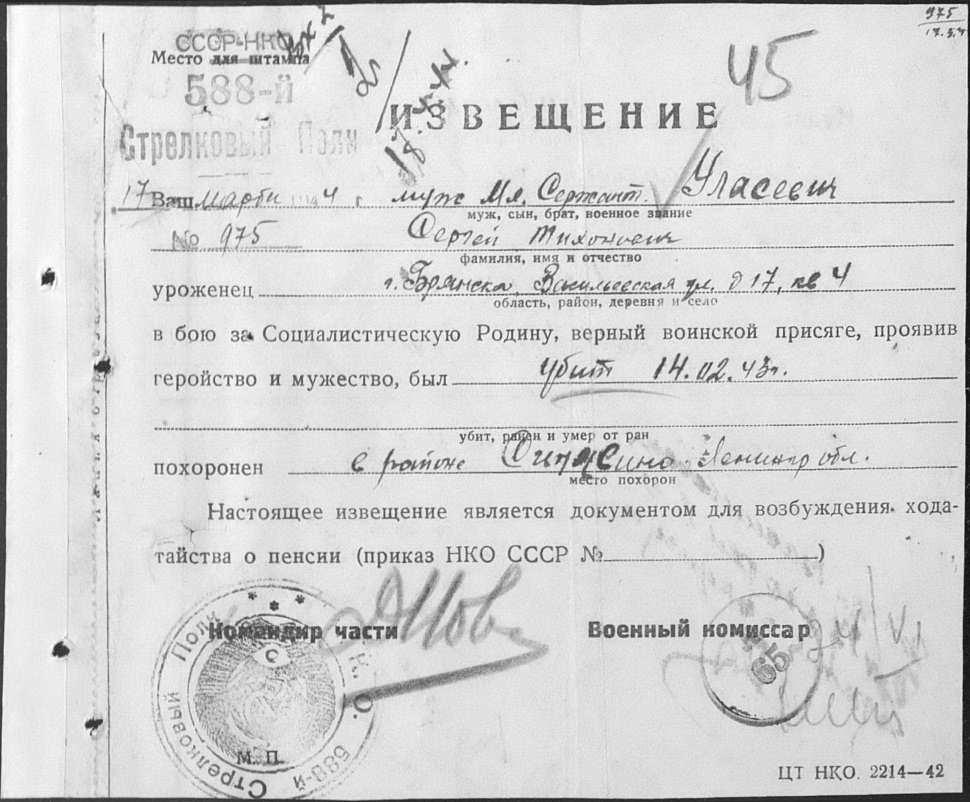 975
СССР-НКО
Место для штампа
588-й
Стрелковый Полк
45
ИЗВЕЩЕНИЕ
17 марта 194 4 г.
№ 975
Ваш муж Мл. Сержант Уласевич
муж, сын, брат, военное звание
Сергей Тихонович
фамилия, имя и отчество
уроженец г. Брянска, Васильевская ул. д 17, кв 4
область, район, деревня и село
в бою за Социалистическую Родину, верный воинской присяге, проявив
геройство и мужество, был убит 14.02.43г.
убит, ранен и умер от ран
похоронен в районе Ленингр обл.
место похорон
Настоящее извещение является документом для возбуждения хода-
тайства о пенсии (приказ НКО СССР №)
Командир части
Военный комиссар
Н. К. О.
588-й Стрелковый Полк
65
М. П.
ЦТ НКО. 2214—42